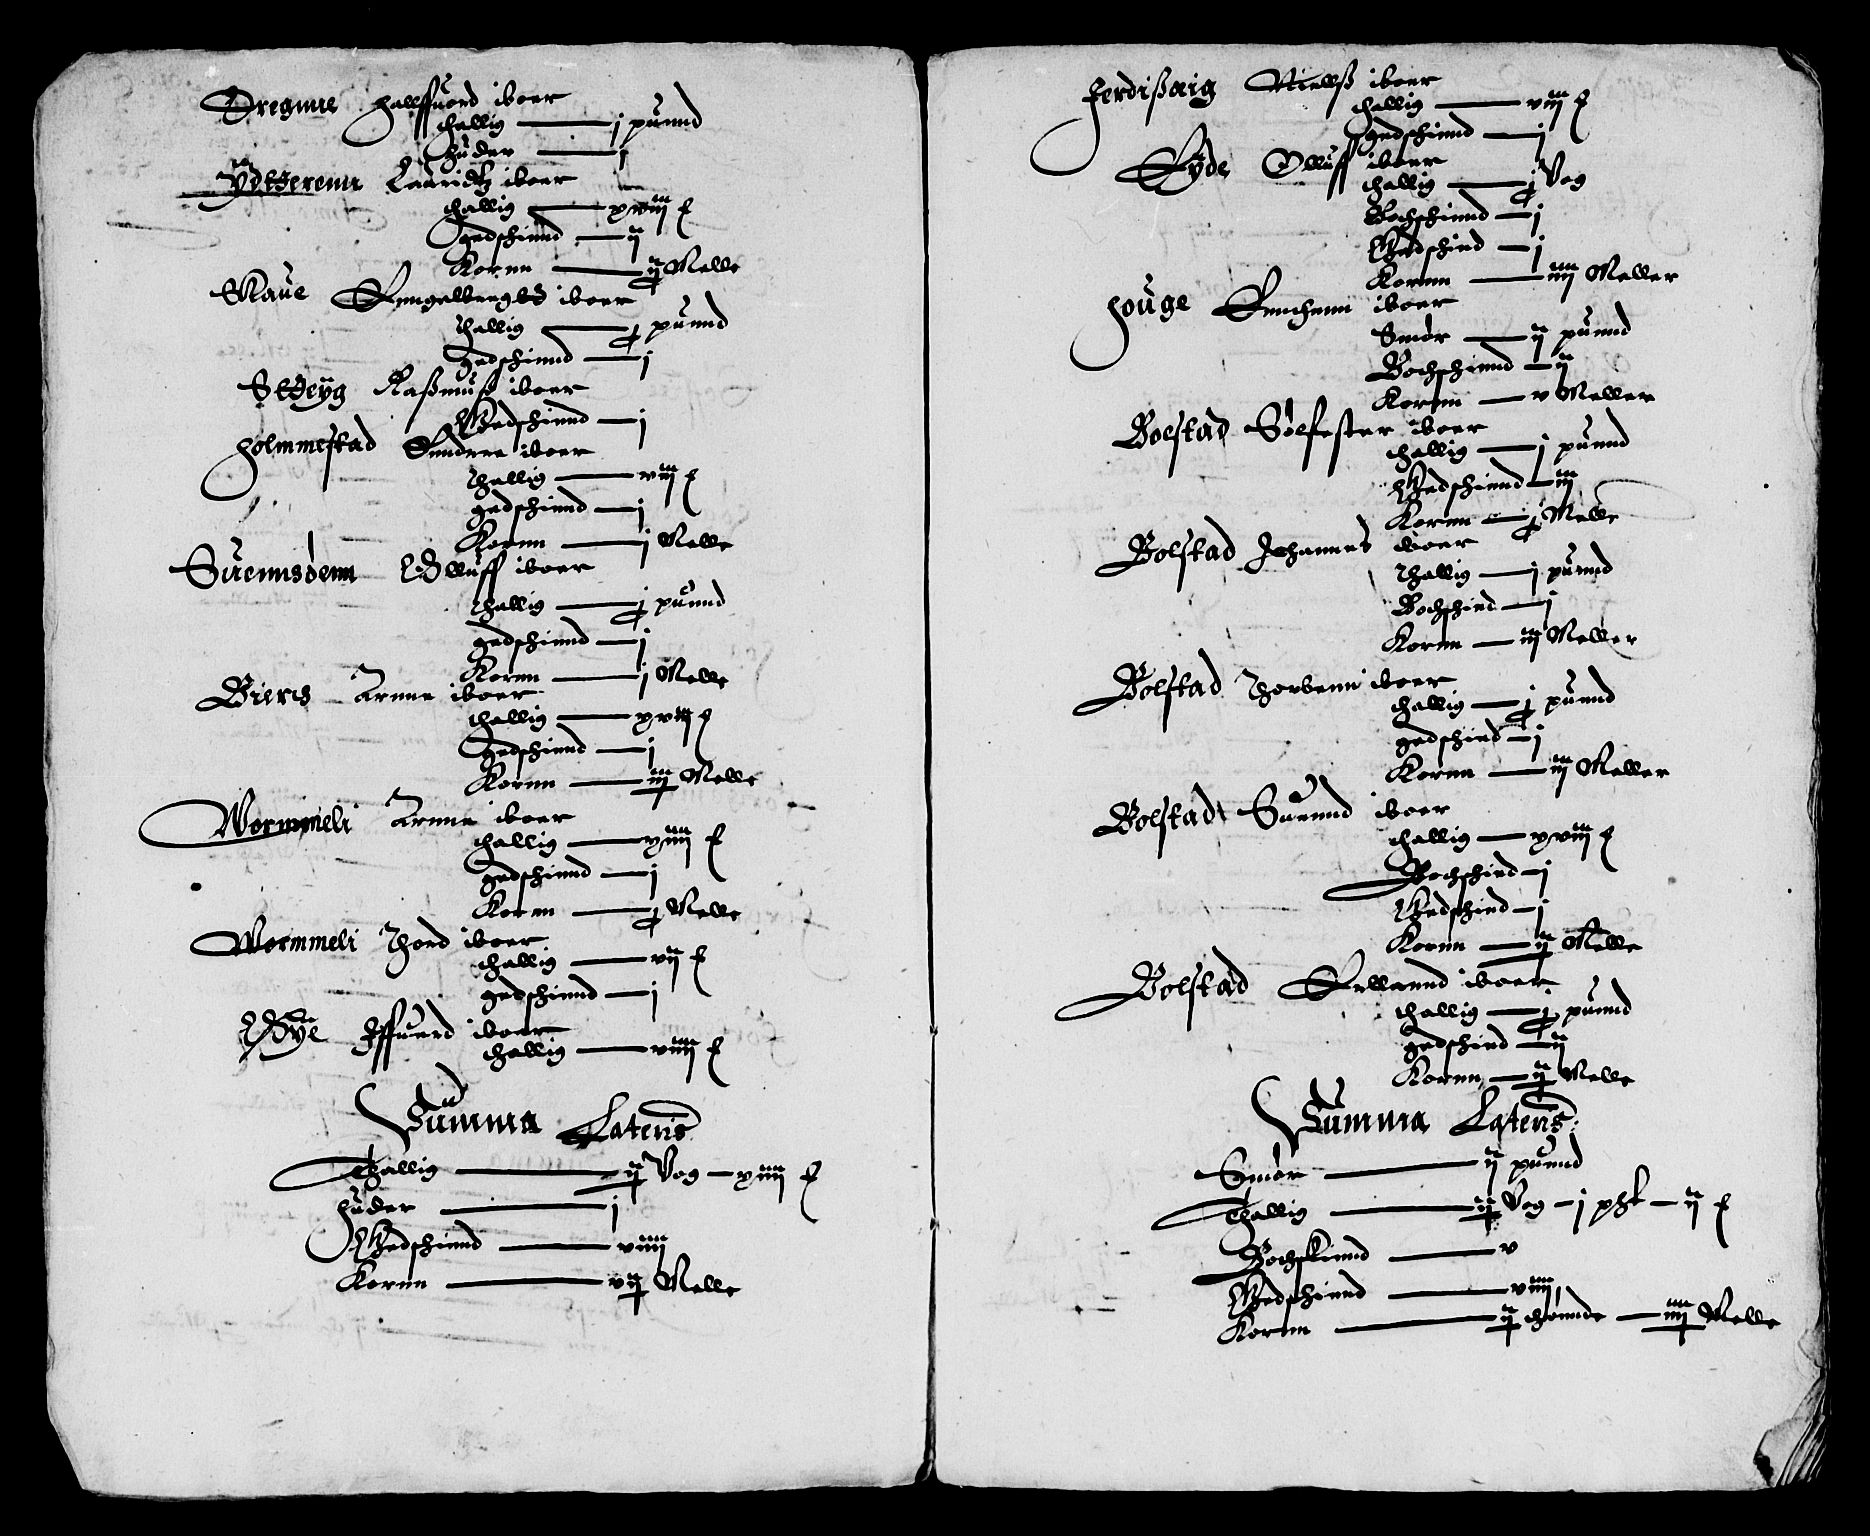 Dregnne Hallffuord iboer
thallig — j puund
huder — j
Ydtterenn Laaridtz iboer
thallig — xviij
gedschinnd — ij
Kornn — ij Melle
Maue Enngelbregtt iboer
thallig — j puund
gedschinnd — j
Stteyg Raßmuß iboer
Giedschinnd — j
Holmmestad iboer
thallig — viij
gedschinnd — j
Kornn — j Melle
Suennsdenn Olluff iboer
thallig — j puund
gedschinnd — j
Kornn — j Melle
Bierns Arnne iboer
thallig — xviij
gedschinnd — j
Kornn — iij Melle
Wormmeli Arnne iboer
thallig — xiiij
gedschinnd — j
Kornn — j Melle
Wormmeli Thord iboer
thallig — vij
gedschinnd — j
Øye Iffuerd iboer
thallig — viiij
Summa Lateris
Thallig — ij Vog — xiiij
Huder — j
Giedschinnd — viiij
Kornn — vij Melle
Ferdißaig Nielß iboer
thallig — viij
gedschinnd — j
Eyde Olluff iboer
thallig — j Vog
Bochschinnd — j
Giedschind — j
Kornn — iiij Meller
Houge Ennchenn iboer
Smør — ij puund
Bochschinnd — ij
Kornn — v Meller
Bolstad Sølfester iboer
thallig — j puund
Giedschinnd — iij
Kornn — j Melle
Bolstad Johannes iboer
Thallig — j puund
Bochschind — j
Kornn — iij Meller
Bolstad Thorbenn iboer
thallig — j puund
gedschind — j
Kornn — iij Meller
Bolstad Suennd iboer
thallig — xviij
Bochschind — j
Giedschind — j
Kornn — ij Melle
Bolstad Erllannd iboer
thallig — j puund
gedschind — ij
Kornn — ij Melle
Summa Lateris
Smør — ij puund
Thallig — ij Vog — j pht — ij
Bochskinnd — v
Giedschinnd — viiij
Kornn — ij thønnde — iiij Melle